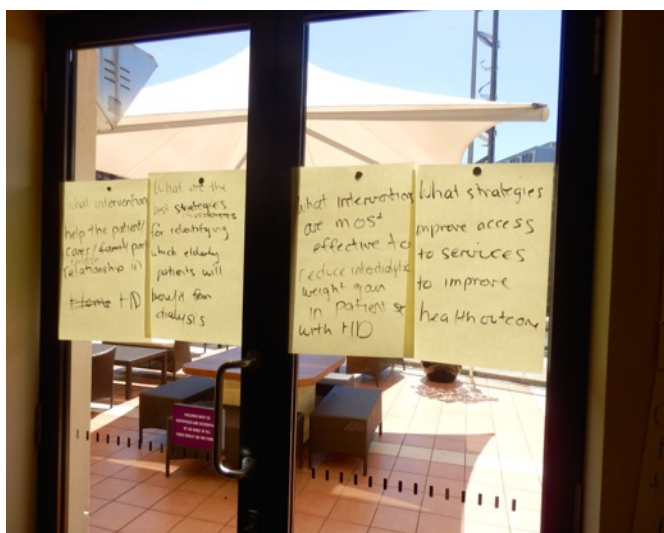 what intervention
help the patient/
carer/family
relationship in
Home HD
What are the
strategies
for identifying
which elderly
patients will
benefit from
dialysis
what interventions
are most
effective to
reduce interdialytic
weight gain
in patients
with HD
What strategies
improve access
to services
to improve
health outcome